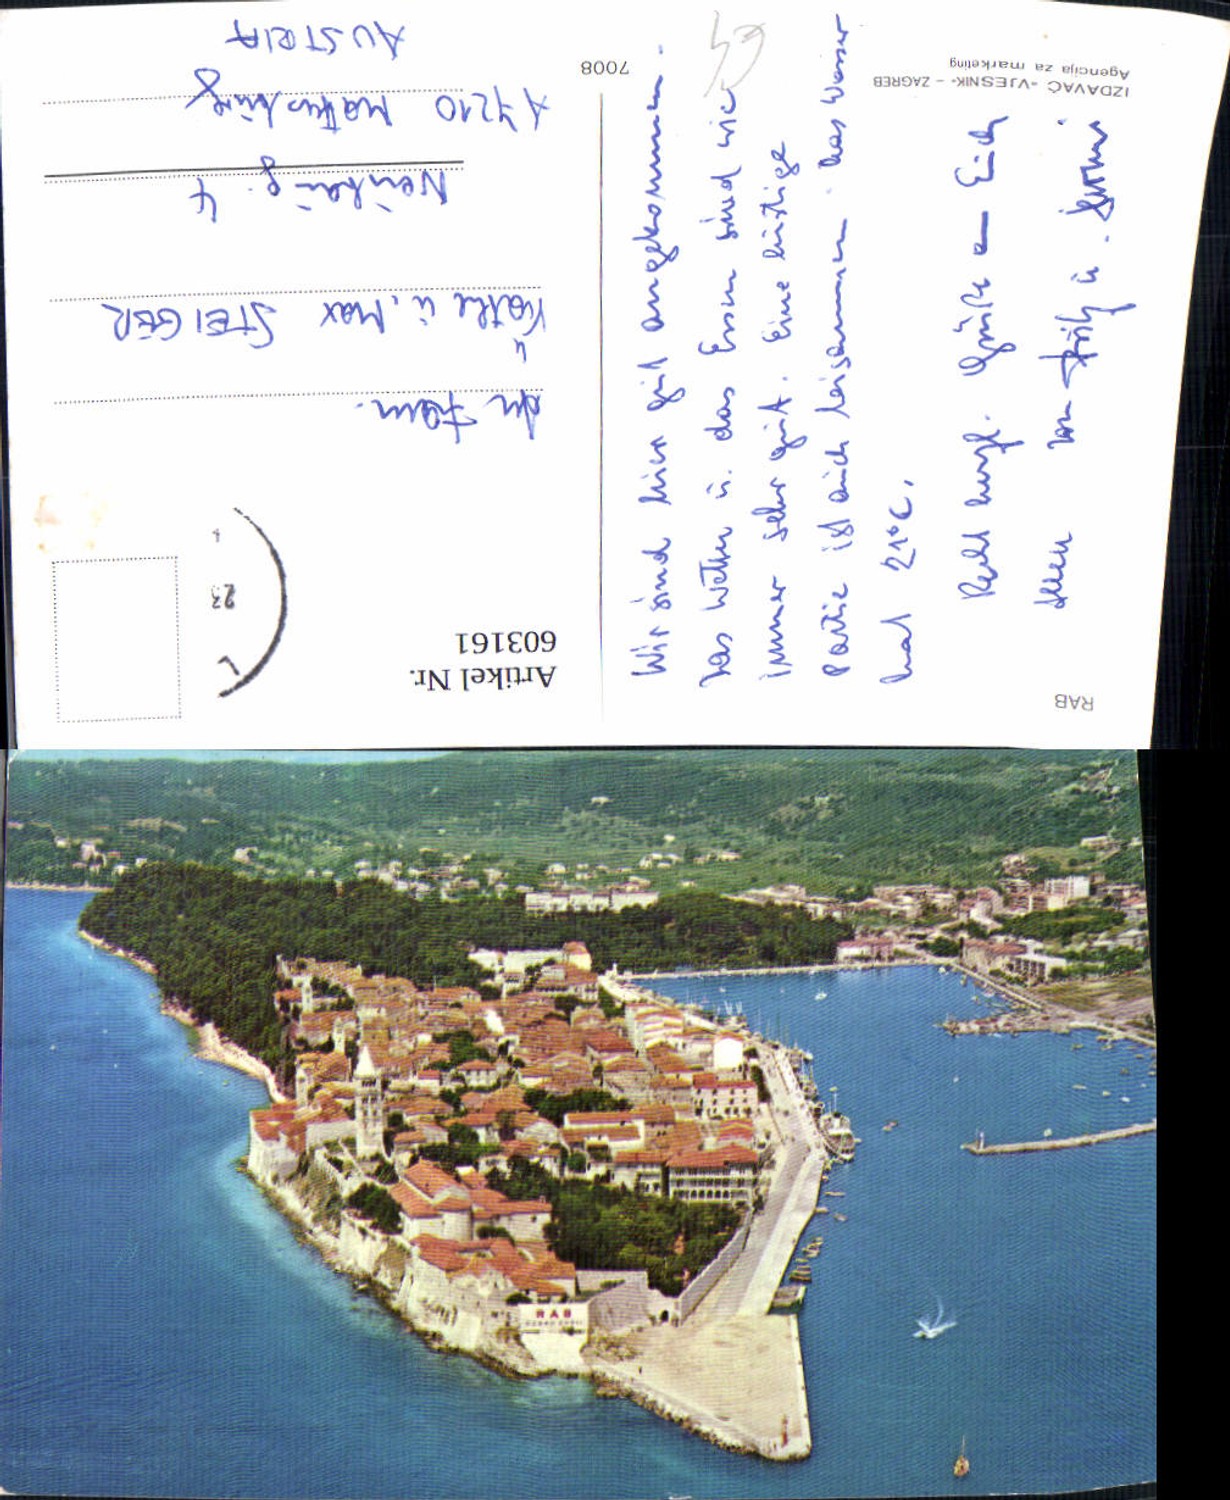 RAB
IZDAVAČ »VJESNIK« – ZAGREB
Agencija za marketing
7008
Artikel Nr.
603161
23
Wir sind hier gut angekommen.
Das Wetter u. das Essen sind wie
immer sehr gut. Eine lustige
Partie ist auch beisammen. Das Wasser
hat 21°C.
Recht herzl. Grüße an Euch
von Fritz u.
An Fam.
Käthe u. Max STEIGER
4
A 7210 Mattersburg
AUSTRIA
RAB